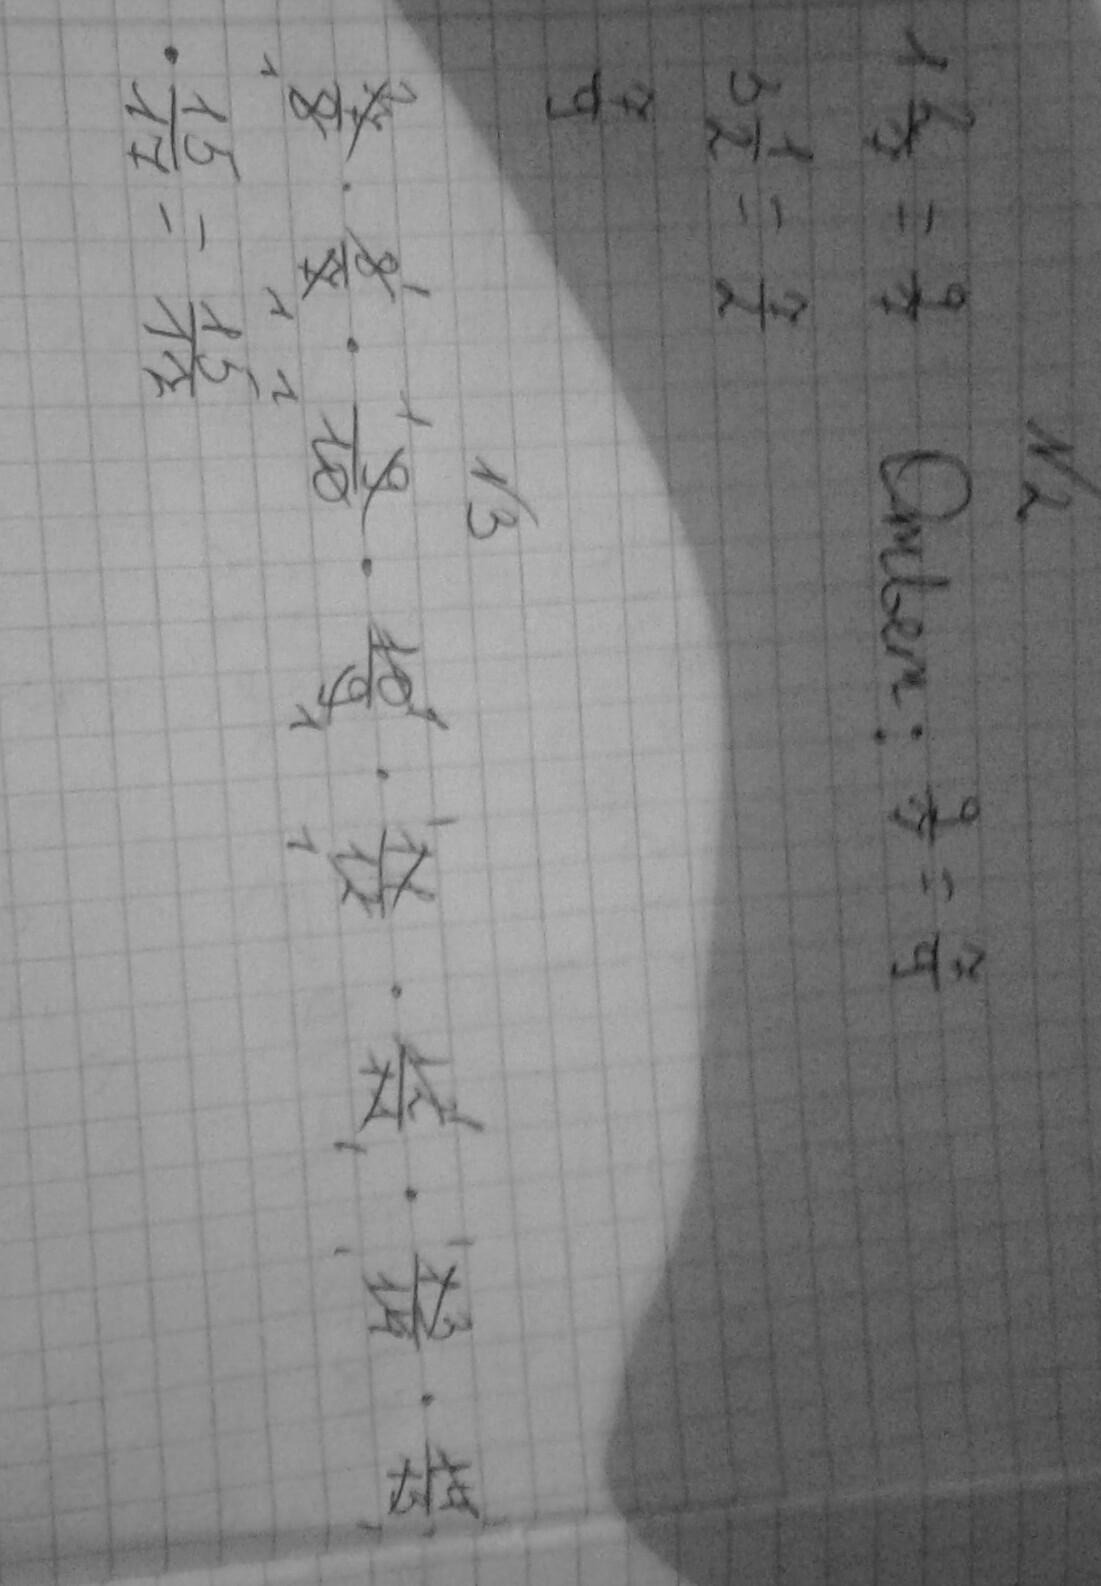 №2
1 2/7 = 9/7 Ответ: 9/7 = 7/9
3 1/2 = 7/2
7/9
№3
7/8 · 8/7 · 9/10 · 10/9 · 11/12 · 12/11 · 13/14 · 14/13
· 15/17 = 15/17